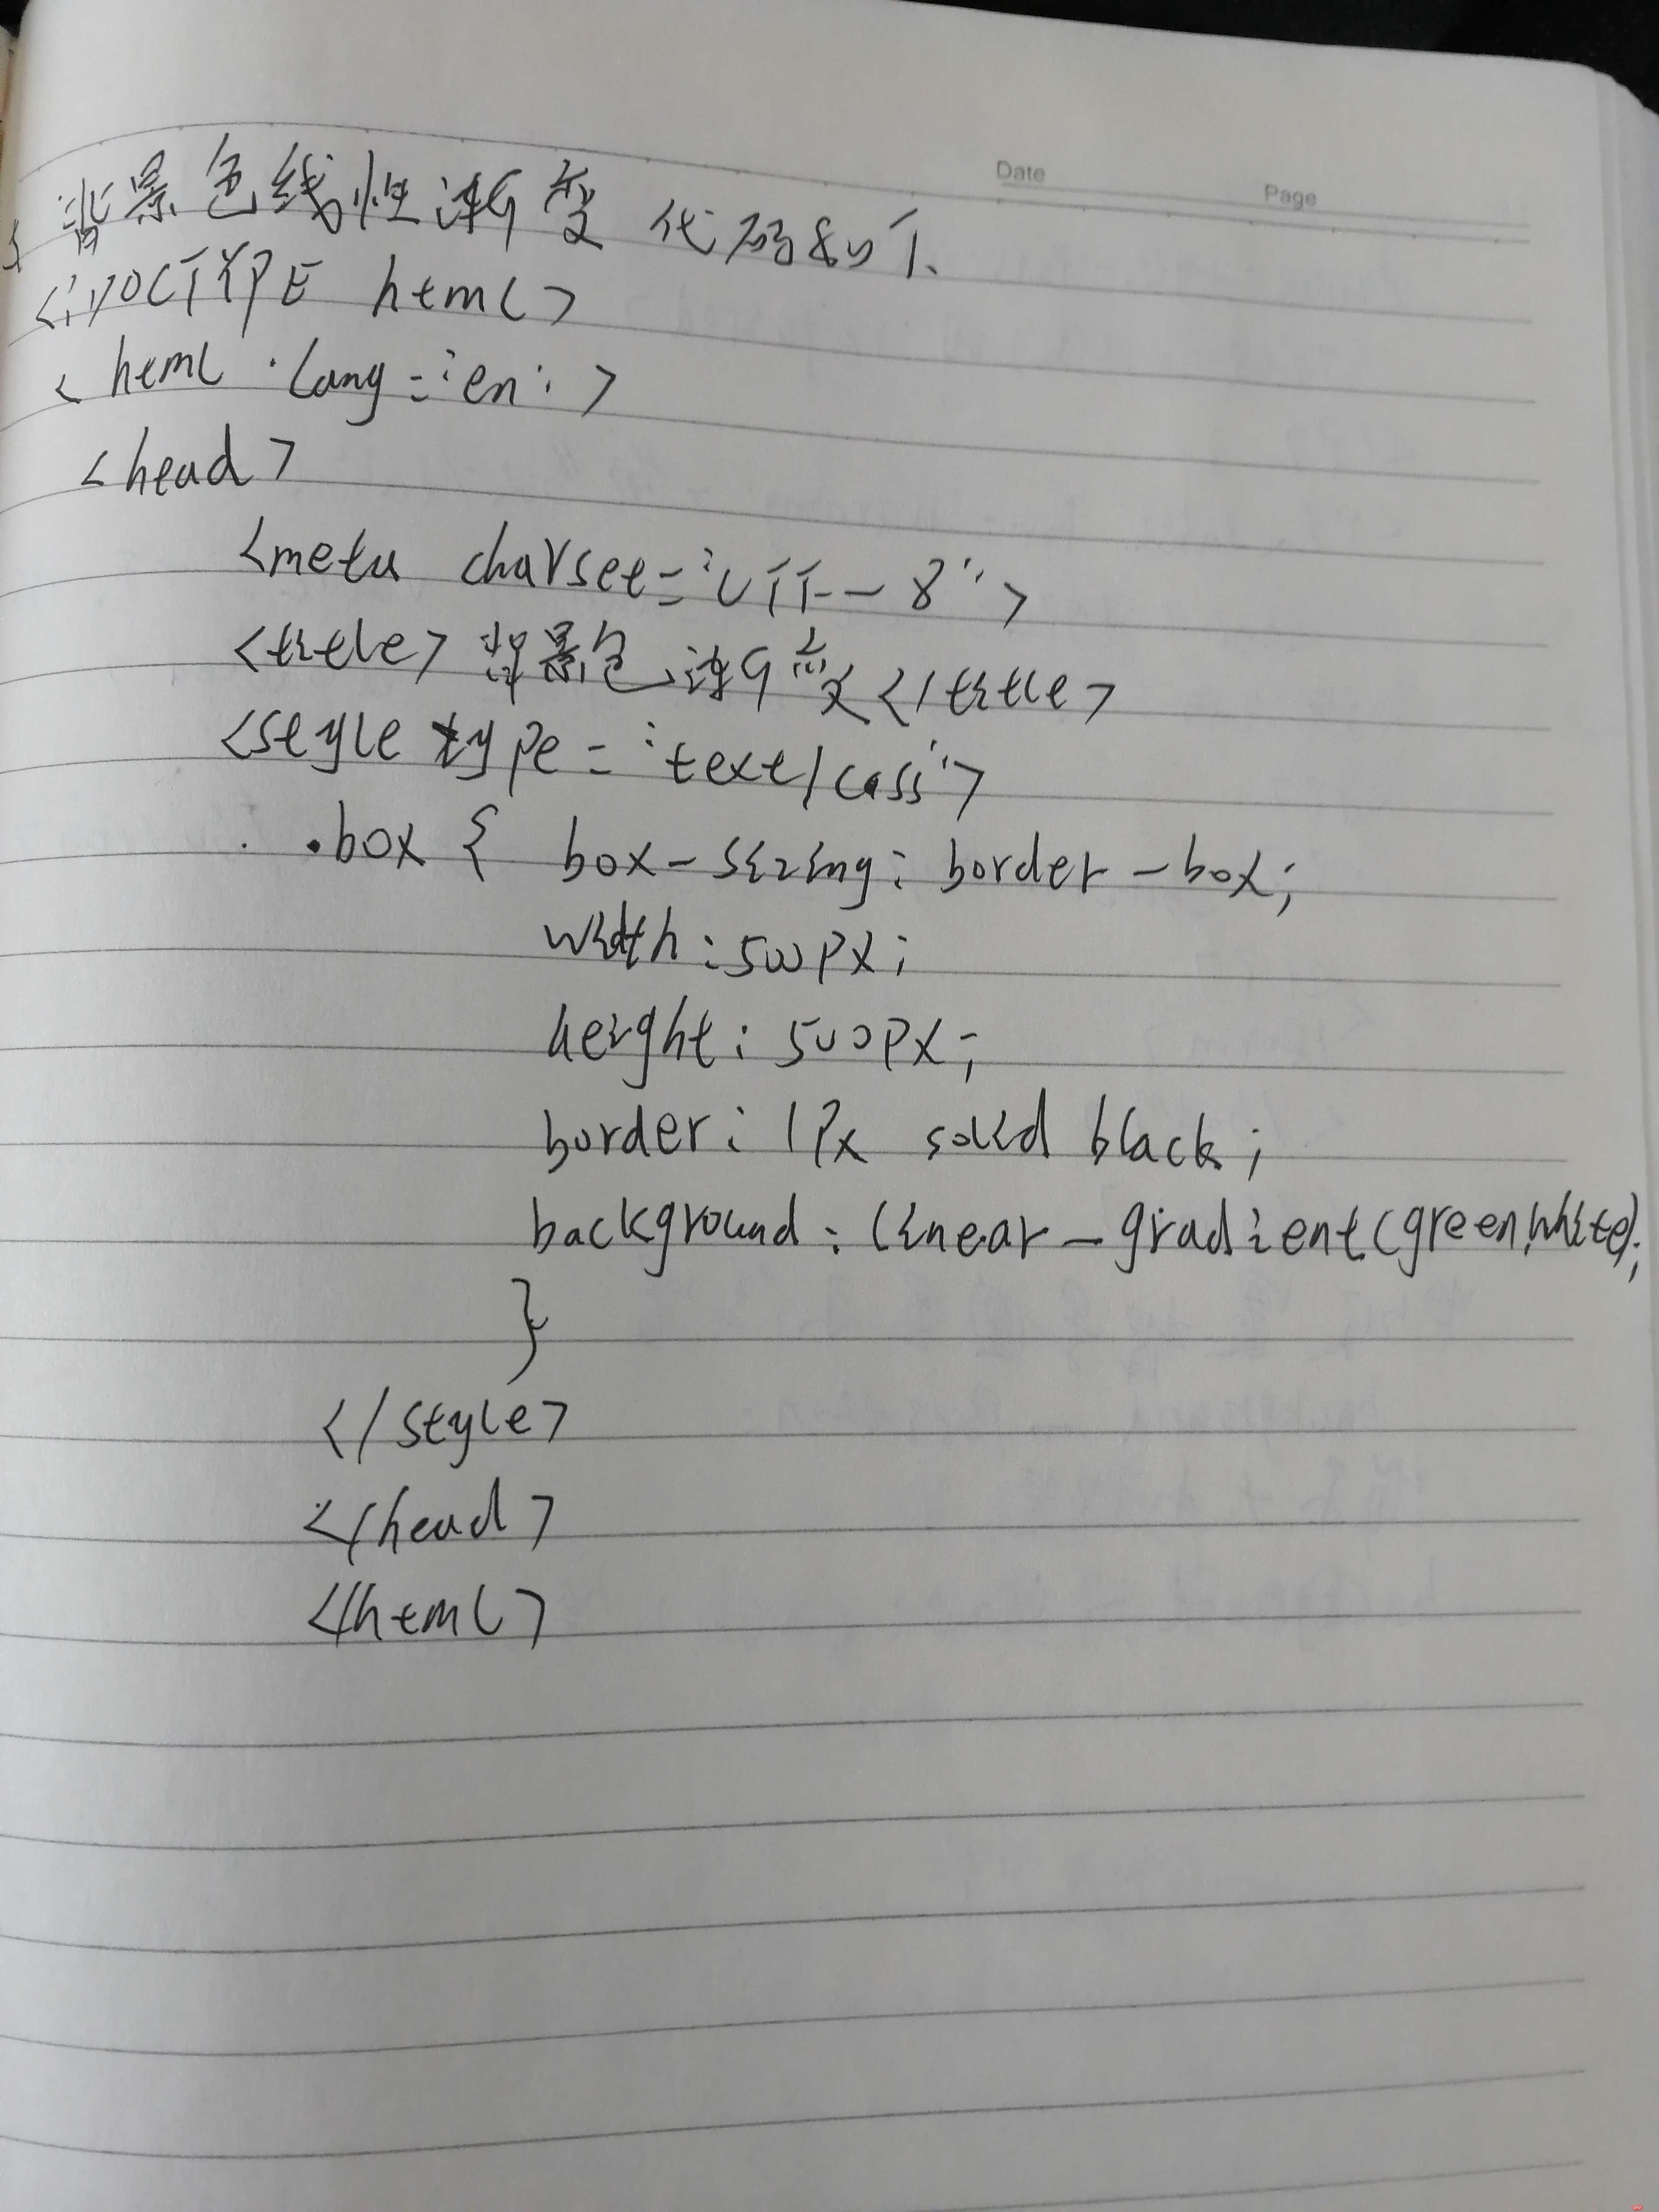 Date Page
背景色线性渐变 代码如下
<!DOCTYPE html>
<html lang="en">
<head>
<meta charset="UTF-8">
<title>背景色渐变</title>
<style type="text/css">
.box { box-sizing: border-box;
width:500px;
height:500px;
border:1px solid black;
background:linear-gradient(green,white);
}
</style>
</head>
</html>